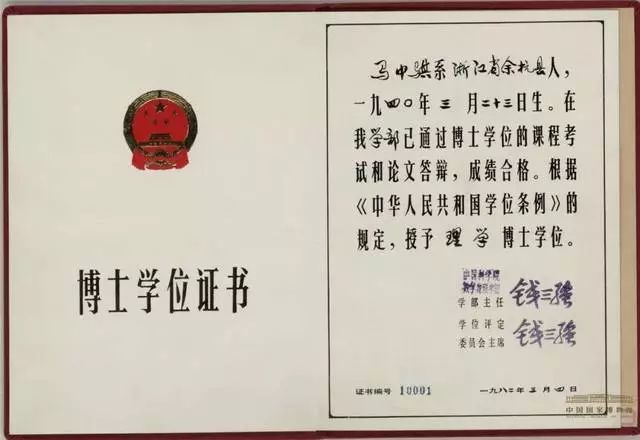 博士学位证书
马中骐系浙江省余杭县人，
一九四〇年三月二十三日生。在
我学部已通过博士学位的课程考
试和论文答辩，成绩合格。根据
《中华人民共和国学位条例》的
规定，授予理学博士学位。
中国科学院
学部主任 钱三强
学位评定
委员会主席 钱三强
证书编号 10001
一九八二年三月四日
中国国家博物馆